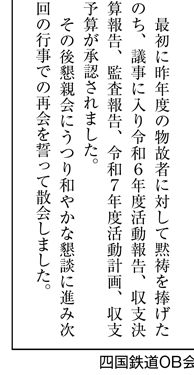 最初に昨年度の物故者に対して黙祷を捧げた
のち、議事に入り令和６年度活動報告、収支決
算報告、監査報告、令和７年度活動計画、収支
予算が承認されました。
その後懇親会にうつり和やかな懇談に進み次
回の行事での再会を誓って散会しました。
四国鉄道OB会